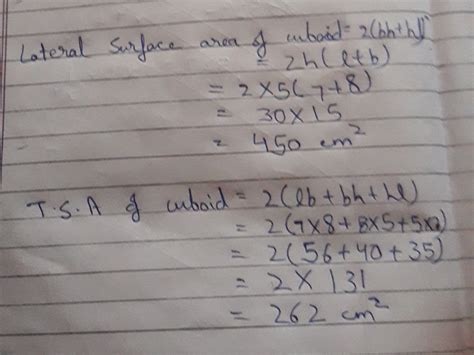 Lateral Surface area of cuboid = 2(bh+hl)
= 2h(l+b)
= 2×5(7+8)
= 30×15
= 450 cm²
T.S.A of cuboid = 2(lb+bh+hl)
= 2(7×8+8×5+5×7)
= 2(56+40+35)
= 2×131
= 262 cm²